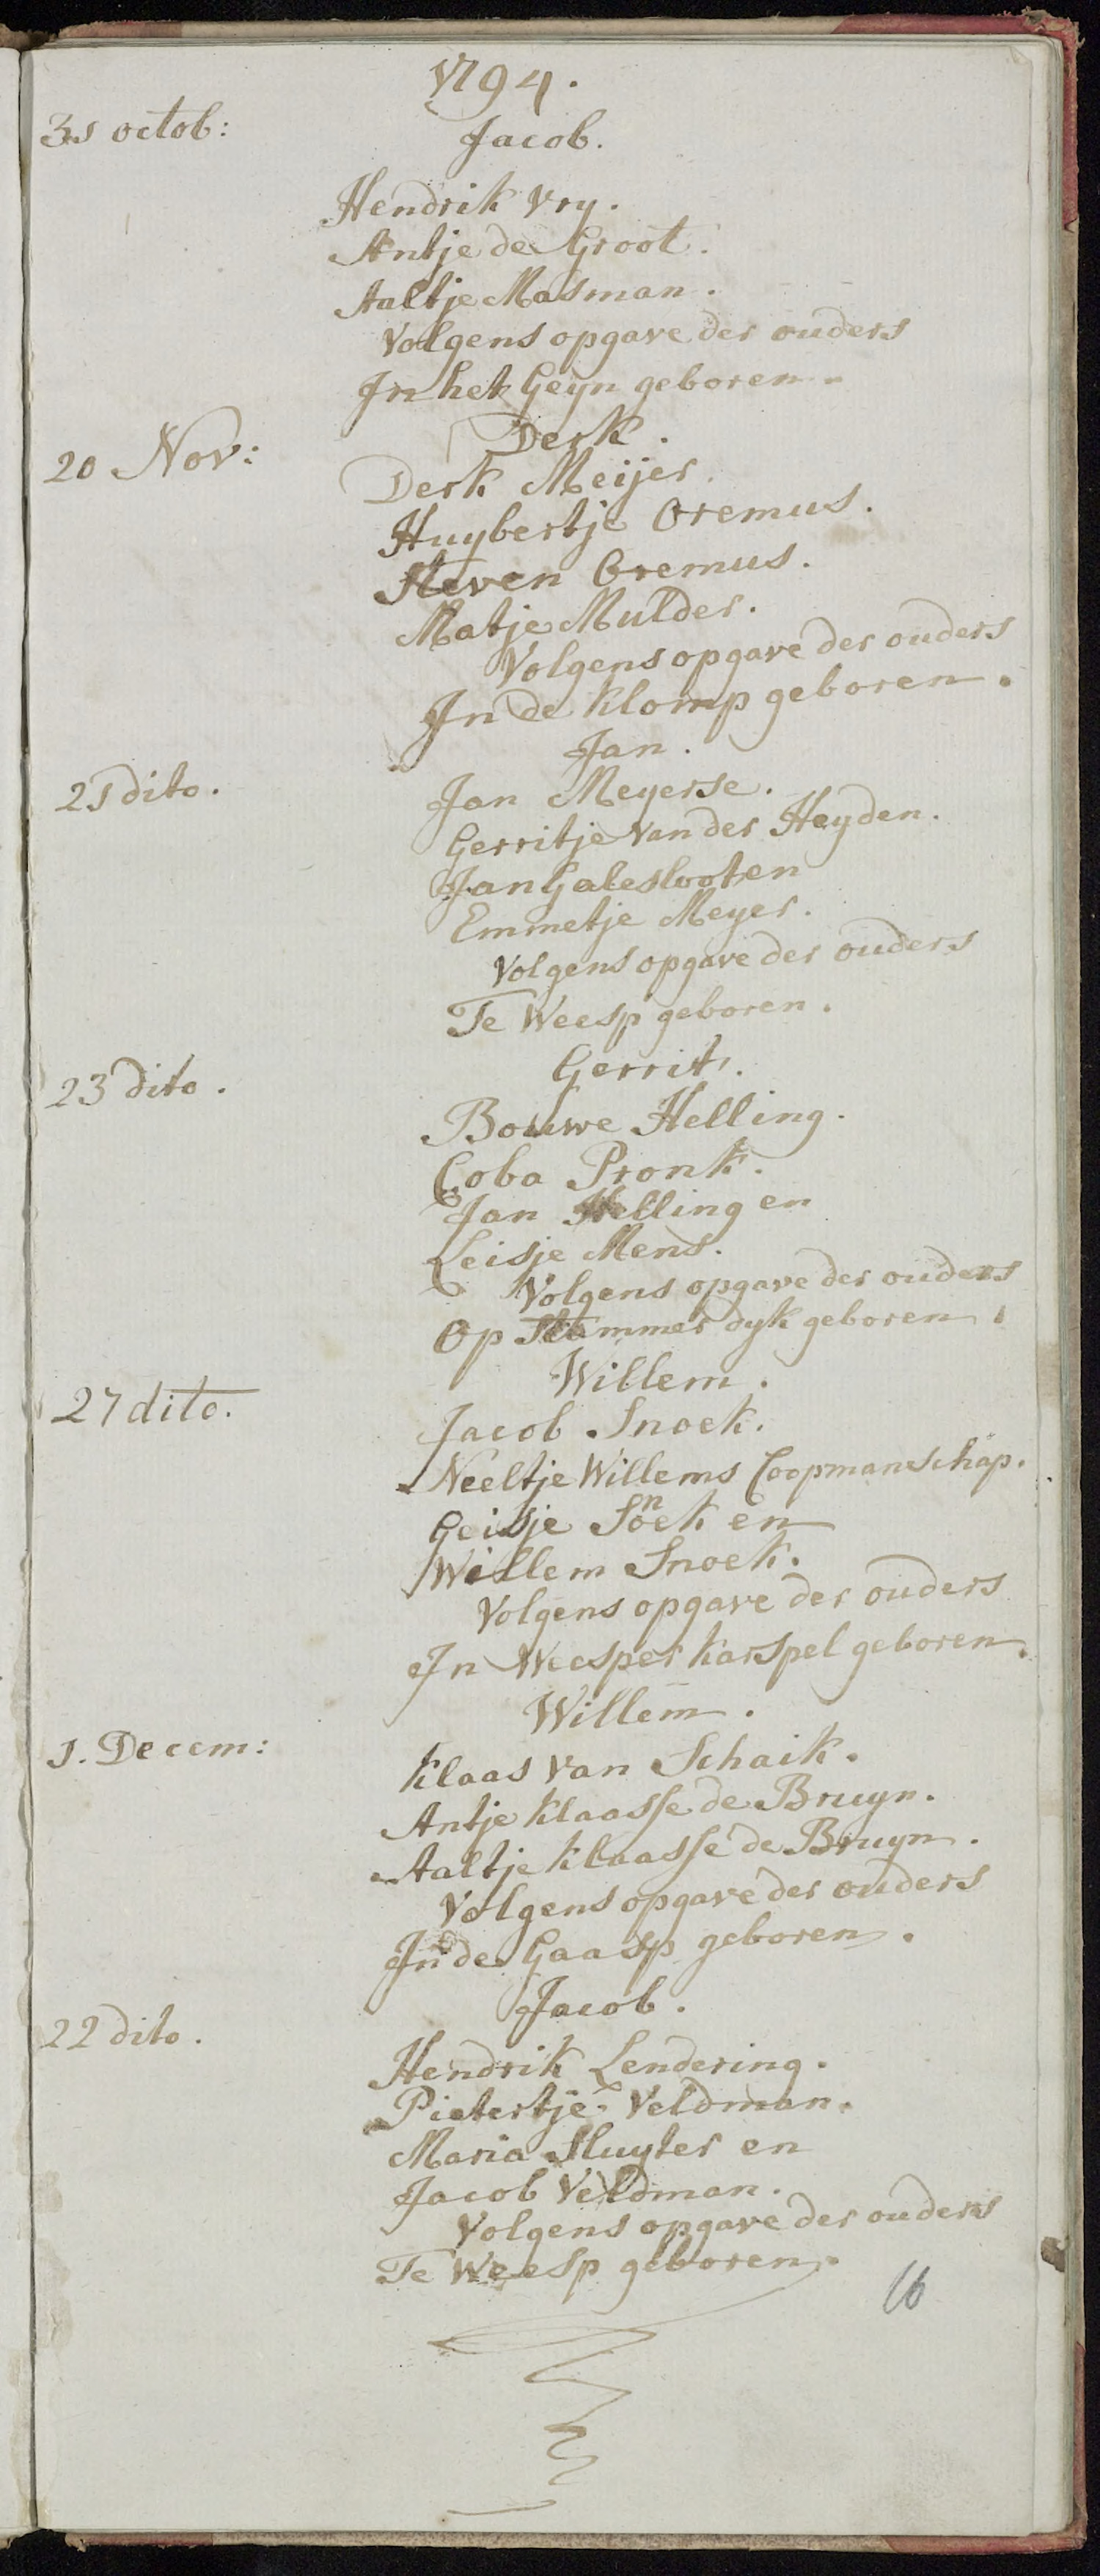 1794.
31 octob:
Jacob.
Hendrik Vry.
Antje de Groot.
Aaltje Masman.
Volgens opgave der ouders
In het Geyn geboren.
20 Nov:
Derk.
Derk Meijer.
Huybertje Oremus.
Steven Oremus.
Matje Mulder.
Volgens opgave der ouders
In de Klomp geboren.
Jan.
21 dito.
Jan Meyerse.
Gerritje Van der Heyden.
Jan Galeslooten
Emmetje Meyer.
Volgens opgave der ouders
Te Weesp geboren.
Gerrit.
23 dito.
Bouwe Helling.
Coba Pronk.
Jan Helling en
Leisje Mens.
Volgens opgave der ouders
Op Stammer dyk geboren.
Willem.
27 dito.
Jacob Snoek.
Neeltje Willems Coopmanschap.
Geisje Snoek en
Willem Snoek.
Volgens opgave der ouders
In Weesper karspel geboren.
Willem.
1. Decem:
Klaas Van Schaik.
Antje Klaasse de Bruyn.
Aaltje Klaasse de Bruyn.
Volgens opgave der ouders
In de Gaasp geboren.
Jacob.
22 dito.
Hendrik Lendering.
Pietertje Veldman.
Maria Sluyter en
Jacob Veldman.
Volgens opgave der ouders
Te Weesp geboren.
16